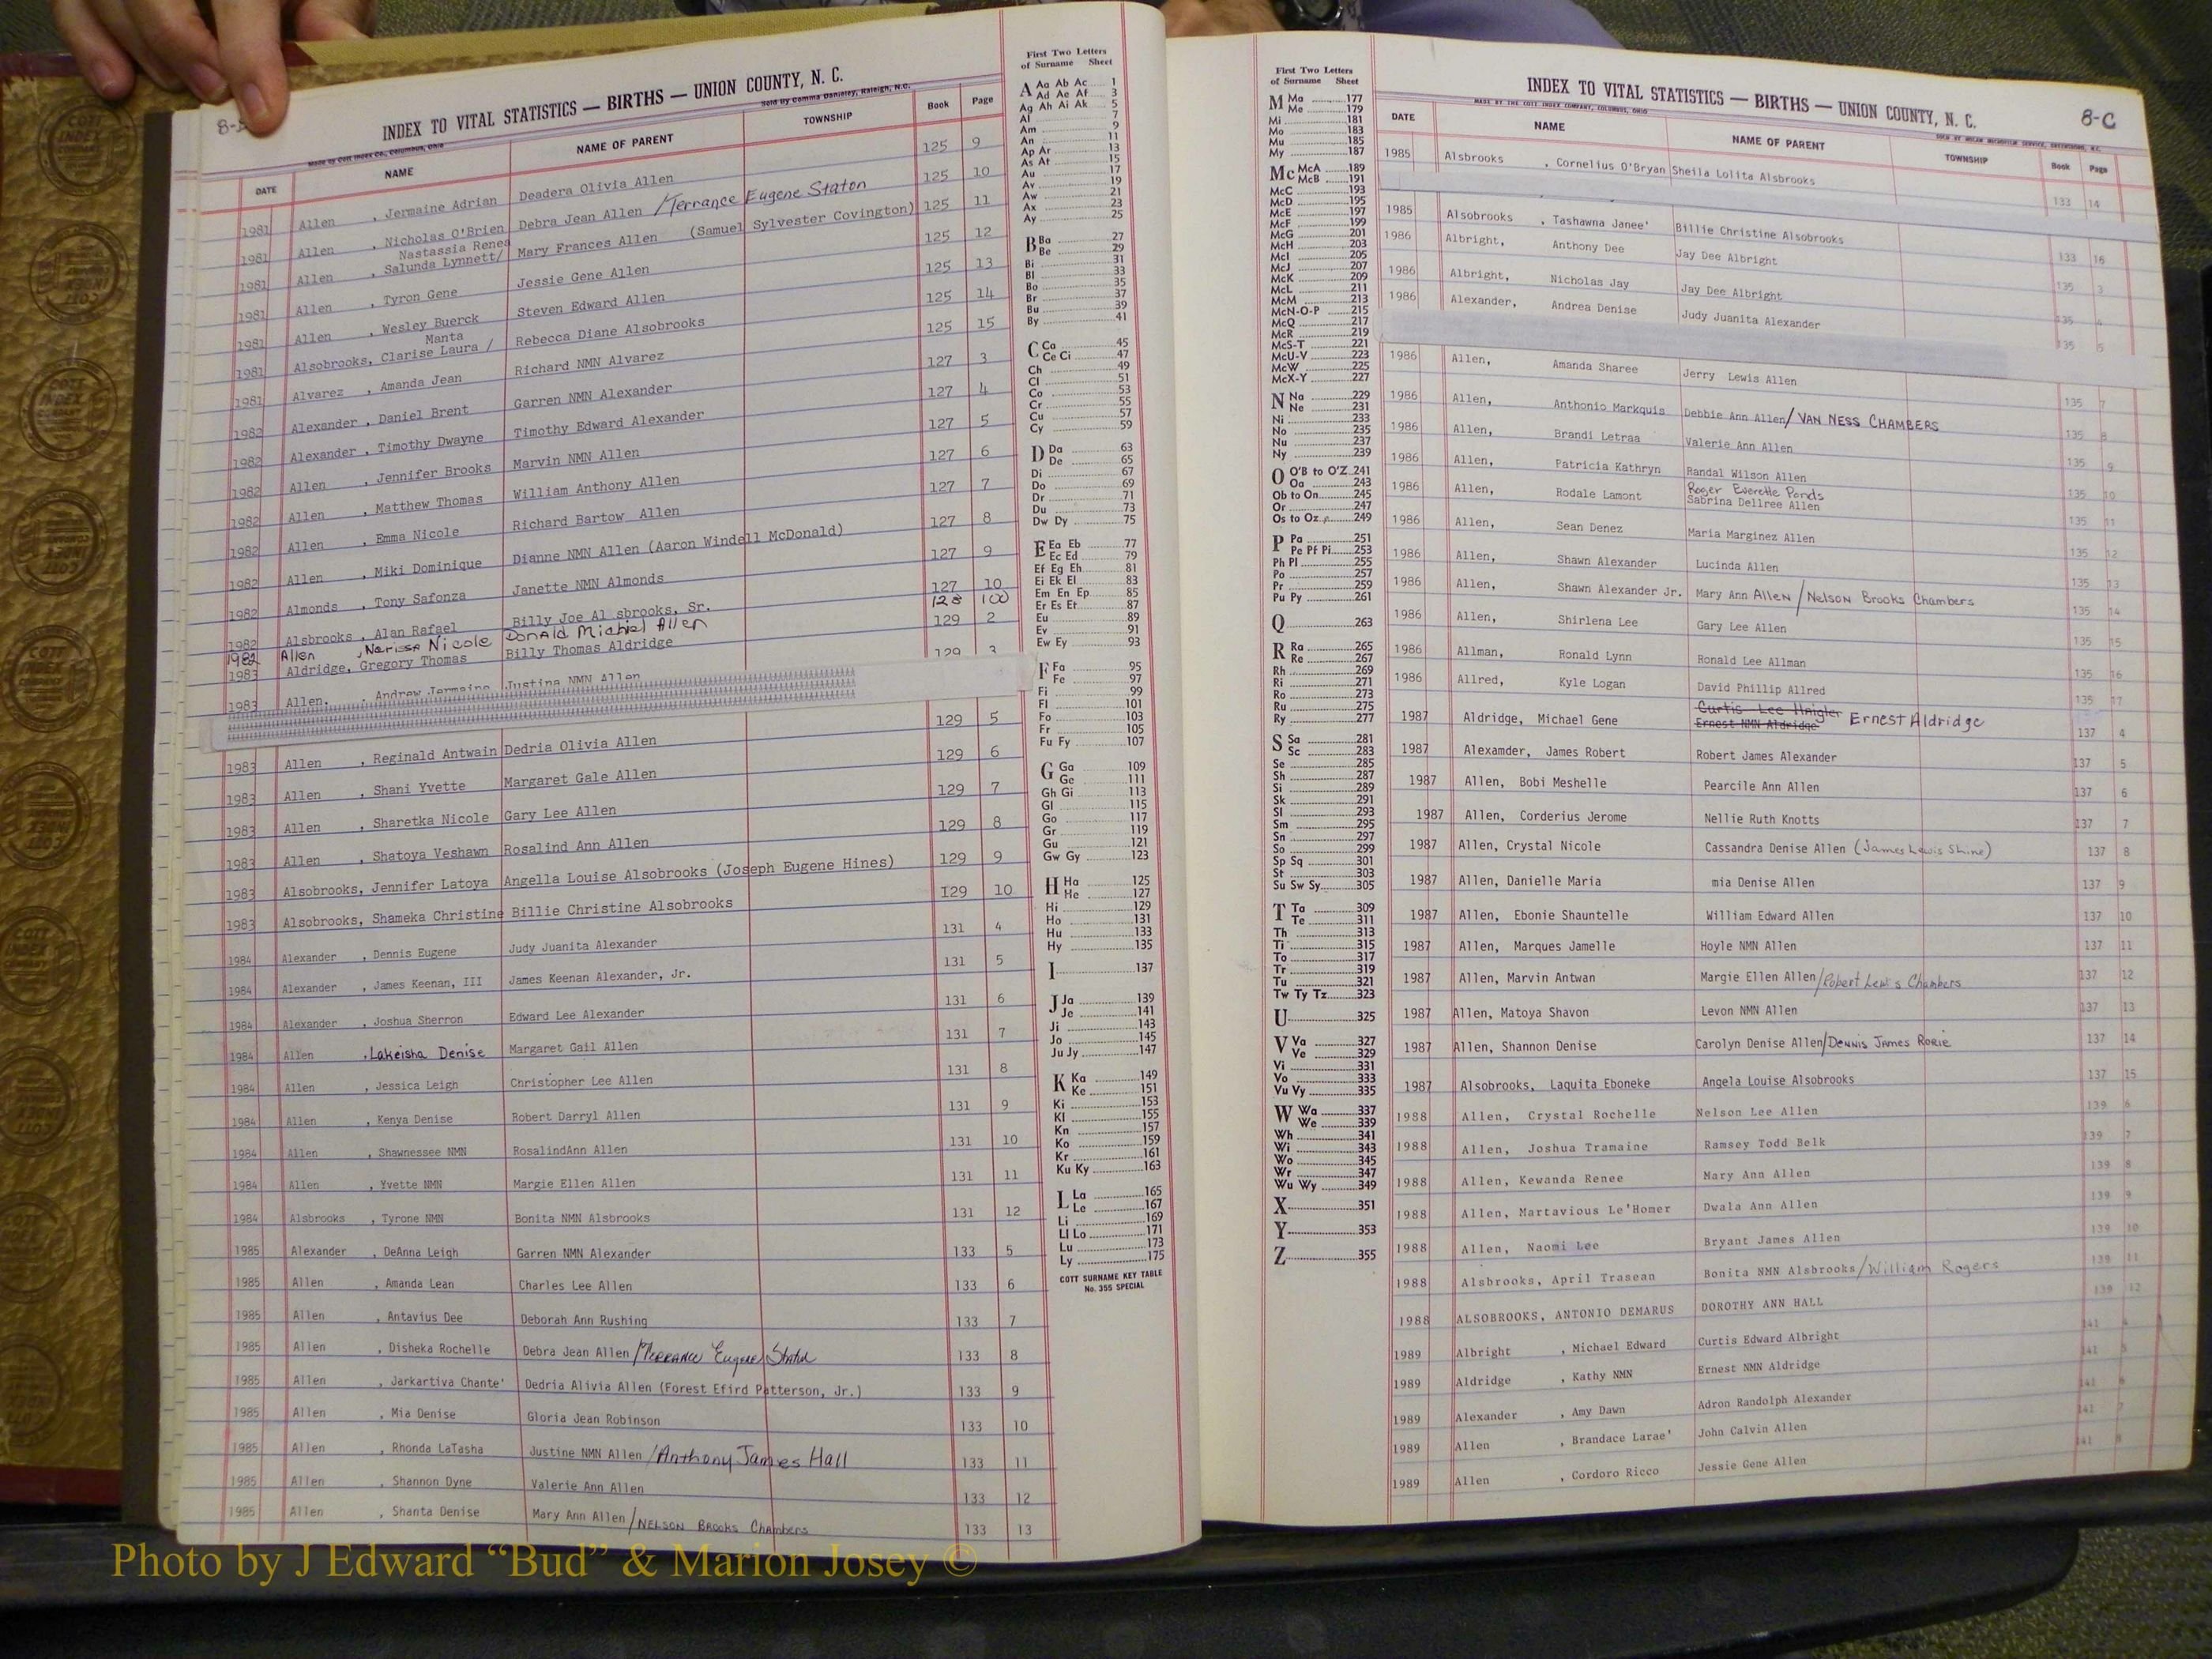 8-
INDEX TO VITAL STATISTICS — BIRTHS — UNION COUNTY, N. C.
Made by Cott Index Co., Columbus, Ohio
Sold by Comma Danieley, Raleigh, N.C.
DATE NAME NAME OF PARENT TOWNSHIP Book Page
1981 Allen , Jermaine Adrian Deadera Olivia Allen 125 9
1981 Allen , Nicholas O'Brien Debra Jean Allen /Terrance Eugene Staton 125 10
Nastassia Renea
1981 Allen , Salunda Lynnett/ Mary Frances Allen (Samuel Sylvester Covington) 125 11
1981 Allen , Tyron Gene Jessie Gene Allen 125 12
1981 Allen , Wesley Buerck Steven Edward Allen 125 13
Manta
1981 Alsobrooks, Clarise Laura / Rebecca Diane Alsobrooks 125 14
1981 Alvarez , Amanda Jean Richard NMN Alvarez 125 15
1982 Alexander , Daniel Brent Garren NMN Alexander 127 3
1982 Alexander , Timothy Dwayne Timothy Edward Alexander 127 4
1982 Allen , Jennifer Brooks Marvin NMN Allen 127 5
1982 Allen , Matthew Thomas William Anthony Allen 127 6
1982 Allen , Emma Nicole Richard Bartow Allen 127 7
1982 Allen , Miki Dominique Dianne NMN Allen (Aaron Windell McDonald) 127 8
1982 Almonds , Tony Safonza Janette NMN Almonds 127 9
1982 Alsbrooks , Alan Rafael Billy Joe Al sbrooks, Sr. 127 10
1982 Allen , Nerissa Nicole Donald Michiel Allen 128 100
1983 Aldridge, Gregory Thomas Billy Thomas Aldridge 129 2
1983 Allen. , Andrew Jermaine Justina NMN Allen 129 3
1983 Allen , Reginald Antwain Dedria Olivia Allen 129 5
1983 Allen , Shani Yvette Margaret Gale Allen 129 6
1983 Allen , Sharetka Nicole Gary Lee Allen 129 7
1983 Allen , Shatoya Veshawn Rosalind Ann Allen 129 8
1983 Alsobrooks, Jennifer Latoya Angella Louise Alsobrooks (Joseph Eugene Hines) 129 9
1983 Alsobrooks, Shameka Christine Billie Christine Alsobrooks 129 10
1984 Alexander , Dennis Eugene Judy Juanita Alexander 131 4
1984 Alexander , James Keenan, III James Keenan Alexander, Jr. 131 5
1984 Alexander , Joshua Sherron Edward Lee Alexander 131 6
1984 Allen , Lakeisha Denise Margaret Gail Allen 131 7
1984 Allen , Jessica Leigh Christopher Lee Allen 131 8
1984 Allen , Kenya Denise Robert Darryl Allen 131 9
1984 Allen , Shawnessee NMN RosalindAnn Allen 131 10
1984 Allen , Yvette NMN Margie Ellen Allen 131 11
1984 Alsbrooks , Tyrone NMN Bonita NMN Alsbrooks 131 12
1985 Alexander , DeAnna Leigh Garren NMN Alexander 133 5
1985 Allen , Amanda Lean Charles Lee Allen 133 6
1985 Allen , Antavius Dee Deborah Ann Rushing 133 7
1985 Allen , Disheka Rochelle Debra Jean Allen /Terrance Eugene Staton 133 8
1985 Allen , Jarkartiva Chante' Dedria Alivia Allen (Forest Efird Patterson, Jr.) 133 9
1985 Allen , Mia Denise Gloria Jean Robinson 133 10
1985 Allen , Rhonda LaTasha Justine NMN Allen /Anthony James Hall 133 11
1985 Allen , Shannon Dyne Valerie Ann Allen 133 12
1985 Allen , Shanta Denise Mary Ann Allen /NELSON BROOKS Chambers 133 13
First Two Letters
of Surname Sheet
A Aa Ab Ac 1
Ad Ae Af 3
Ag Ah Ai Ak 5
Al 7
Am 9
An 11
Ap Ar 13
As At 15
Au 17
Av 19
Aw 21
Ax 23
Ay 25
B Ba 27
Be 29
Bi 31
Bl 33
Bo 35
Br 37
Bu 39
By 41
C Ca 45
Ce Ci 47
Ch 49
Cl 51
Co 53
Cr 55
Cu 57
Cy 59
D Da 63
De 65
Di 67
Do 69
Dr 71
Du 73
Dw Dy 75
E Ea Eb 77
Ec Ed 79
Ef Eg Eh 81
Ei Ek El 83
Em En Ep 85
Er Es Et 87
Eu 89
Ev 91
Ew Ey 93
F Fa 95
Fe 97
Fi 99
Fl 101
Fo 103
Fr 105
Fu Fy 107
G Ga 109
Ge 111
Gh Gi 113
Gl 115
Go 117
Gr 119
Gu 121
Gw Gy 123
H Ha 125
He 127
Hi 129
Ho 131
Hu 133
Hy 135
I 137
J Ja 139
Je 141
Ji 143
Jo 145
Ju Jy 147
K Ka 149
Ke 151
Ki 153
Kl 155
Kn 157
Ko 159
Kr 161
Ku Ky 163
L La 165
Le 167
Li 169
Ll Lo 171
Lu 173
Ly 175
COTT SURNAME KEY TABLE
No. 355 SPECIAL
First Two Letters
of Surname Sheet
M Ma 177
Me 179
Mi 181
Mo 183
Mu 185
My 187
Mc McA 189
McB 191
McC 193
McD 195
McE 197
McF 199
McG 201
McH 203
McI 205
McJ 207
McK 209
McL 211
McM 213
McN-O-P 215
McQ 217
McR 219
McS-T 221
McU-V 223
McW 225
McX-Y 227
N Na 229
Ne 231
Ni 233
No 235
Nu 237
Ny 239
O O'B to O'Z 241
Oa 243
Ob to On 245
Or 247
Os to Oz 249
P Pa 251
Pe Pf Pi 253
Ph Pl 255
Po 257
Pr 259
Pu Py 261
Q 263
R Ra 265
Re 267
Rh 269
Ri 271
Ro 273
Ru 275
Ry 277
S Sa 281
Sc 283
Se 285
Sh 287
Si 289
Sk 291
Sl 293
Sm 295
Sn 297
So 299
Sp Sq 301
St 303
Su Sw Sy 305
T Ta 309
Te 311
Th 313
Ti 315
To 317
Tr 319
Tu 321
Tw Ty Tz 323
U 325
V Va 327
Ve 329
Vi 331
Vo 333
Vu Vy 335
W Wa 337
We 339
Wh 341
Wi 343
Wo 345
Wr 347
Wu Wy 349
X 351
Y 353
Z 355
8-C
INDEX TO VITAL STATISTICS — BIRTHS — UNION COUNTY, N. C.
MADE BY THE COTT INDEX COMPANY, COLUMBUS, OHIO
DATE NAME NAME OF PARENT TOWNSHIP Book Page
1985 Alsbrooks , Cornelius O'Bryan Sheila Lolita Alsbrooks 133 14
1985 Alsobrooks , Tashawna Janee' Billie Christine Alsobrooks 133 16
1986 Albright, Anthony Dee Jay Dee Albright 135 3
1986 Albright, Nicholas Jay Jay Dee Albright 135 4
1986 Alexander, Andrea Denise Judy Juanita Alexander 135 5
1986 Allen, Amanda Sharee Jerry Lewis Allen 135 7
1986 Allen, Anthonio Markquis Debbie Ann Allen/ VAN NESS CHAMBERS 135 8
1986 Allen, Brandi Letraa Valerie Ann Allen 135 9
1986 Allen, Patricia Kathryn Randal Wilson Allen 135 10
Roger Everette Ponds
1986 Allen, Rodale Lamont Sabrina Dellree Allen 135 11
1986 Allen, Sean Denez Maria Marginez Allen 135 12
1986 Allen, Shawn Alexander Lucinda Allen 135 13
1986 Allen, Shawn Alexander Jr. Mary Ann Allen / Nelson Brooks Chambers 135 14
1986 Allen, Shirlena Lee Gary Lee Allen 135 15
1986 Allman, Ronald Lynn Ronald Lee Allman 135 16
1986 Allred, Kyle Logan David Phillip Allred 135 17
Curtis Lee Haigler
1987 Aldridge, Michael Gene Ernest NMN Aldridge Ernest Aldridge 137 4
1987 Alexamder, James Robert Robert James Alexander 137 5
1987 Allen, Bobi Meshelle Pearcile Ann Allen 137 6
1987 Allen, Corderius Jerome Nellie Ruth Knotts 137 7
1987 Allen, Crystal Nicole Cassandra Denise Allen (James Lewis Shine) 137 8
1987 Allen, Danielle Maria mia Denise Allen 137 9
1987 Allen, Ebonie Shauntelle William Edward Allen 137 10
1987 Allen, Marques Jamelle Hoyle NMN Allen 137 11
1987 Allen, Marvin Antwan Margie Ellen Allen/Robert Lewis Chambers 137 12
1987 Allen, Matoya Shavon Levon NMN Allen 137 13
1987 Allen, Shannon Denise Carolyn Denise Allen/Dennis James Rorie 137 14
1987 Alsobrooks, Laquita Eboneke Angela Louise Alsobrooks 137 15
1988 Allen, Crystal Rochelle Nelson Lee Allen 139 6
1988 Allen, Joshua Tramaine Ramsey Todd Belk 139 7
1988 Allen, Kewanda Renee Mary Ann Allen 139 8
1988 Allen, Martavious Le'Homer Dwala Ann Allen 139 9
1988 Allen, Naomi Lee Bryant James Allen 139 10
1988 Alsbrooks, April Trasean Bonita NMN Alsbrooks/William Rogers 139 11
1988 ALSOBROOKS, ANTONIO DEMARUS DOROTHY ANN HALL 139 12
1989 Albright , Michael Edward Curtis Edward Albright 141 4
1989 Aldridge , Kathy NMN Ernest NMN Aldridge 141 5
1989 Alexander , Amy Dawn Adron Randolph Alexander 141 6
1989 Allen , Brandace Larae' John Calvin Allen 141 7
1989 Allen , Cordoro Ricco Jessie Gene Allen 141 8
Photo by J Edward “Bud” & Marion Josey ©